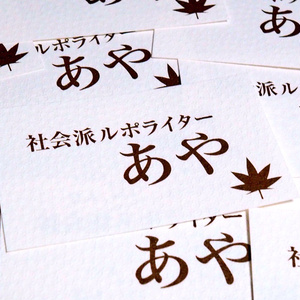 ルポライター
あや
社会派ルポライター
あや
派ル
ライター
あや
社